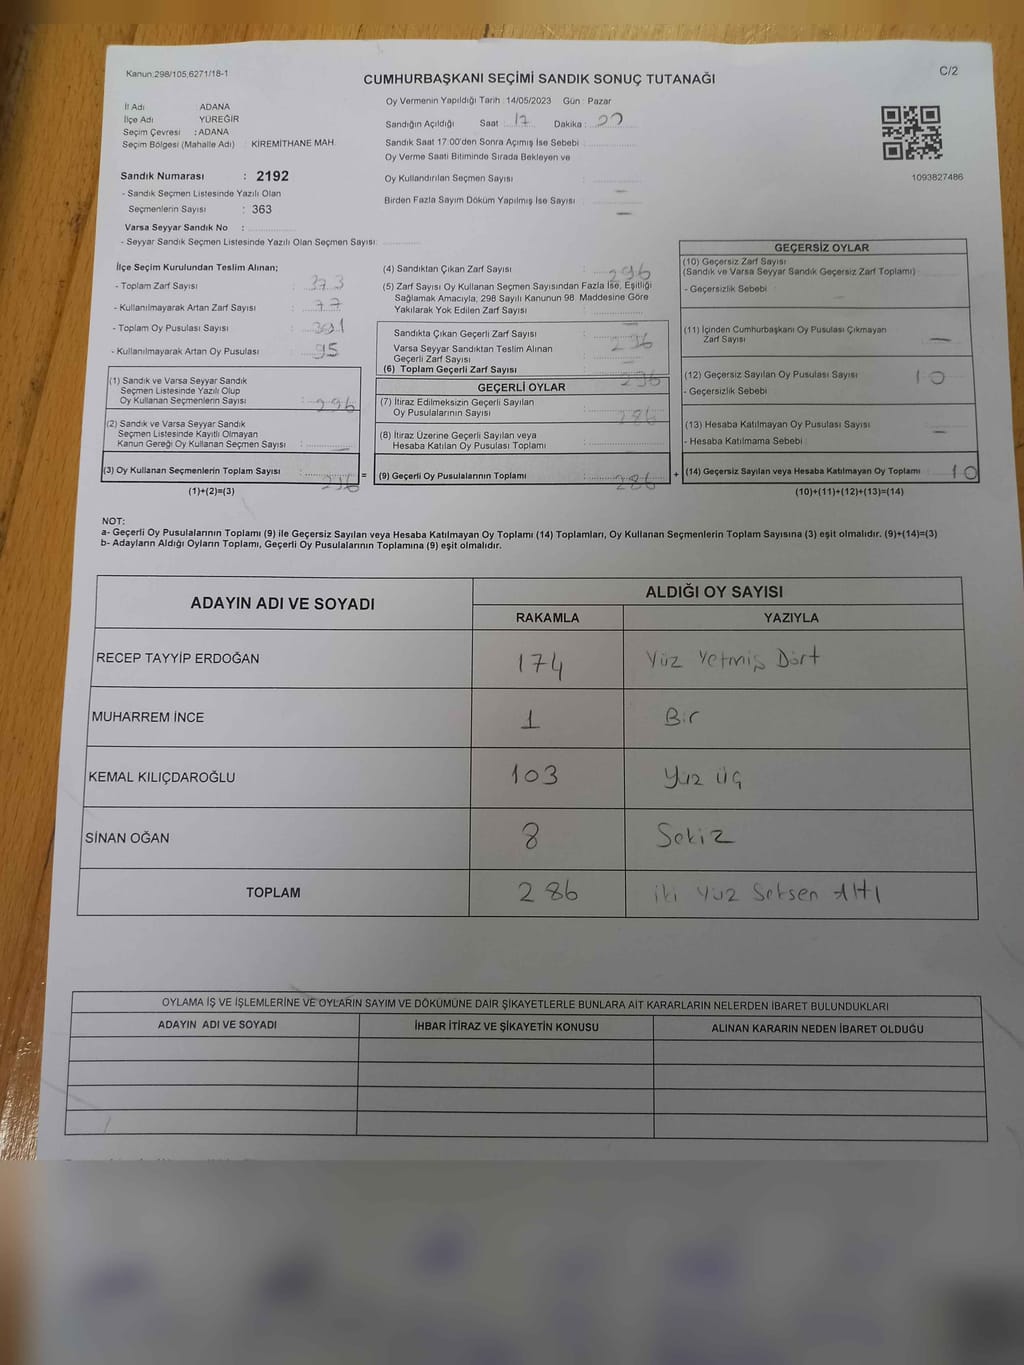 Kanun:298/105,6271/18-1
CUMHURBAŞKANI SEÇİMİ SANDIK SONUÇ TUTANAĞI
C/2
İl Adı ADANA
İlçe Adı YÜREĞİR
Seçim Çevresi : ADANA
Seçim Bölgesi (Mahalle Adı) : KİREMİTHANE MAH.
Sandık Numarası : 2192
- Sandık Seçmen Listesinde Yazılı Olan
Seçmenlerin Sayısı : 363
Varsa Seyyar Sandık No :
- Seyyar Sandık Seçmen Listesinde Yazılı Olan Seçmen Sayısı:
Oy Vermenin Yapıldığı Tarih : 14/05/2023 Gün : Pazar
Sandığın Açıldığı Saat : 17 Dakika :
Sandık Saat 17:00'den Sonra Açımış İse Sebebi :
Oy Verme Saati Bitiminde Sırada Bekleyen ve
Oy Kullandırılan Seçmen Sayısı :
Birden Fazla Sayım Döküm Yapılmış İse Sayısı :
1093827486
İlçe Seçim Kurulundan Teslim Alınan;
- Toplam Zarf Sayısı : 373
- Kullanılmayarak Artan Zarf Sayısı : 77
- Toplam Oy Pusulası Sayısı :
- Kullanılmayarak Artan Oy Pusulası : 95
(1) Sandık ve Varsa Seyyar Sandık
Seçmen Listesinde Yazılı Olup
Oy Kullanan Seçmenlerin Sayısı : 296
(2) Sandık ve Varsa Seyyar Sandık
Seçmen Listesinde Kayıtlı Olmayan
Kanun Gereği Oy Kullanan Seçmen Sayısı : —
(3) Oy Kullanan Seçmenlerin Toplam Sayısı : 296 =
(1)+(2)=(3)
(4) Sandıktan Çıkan Zarf Sayısı : 296
(5) Zarf Sayısı Oy Kullanan Seçmen Sayısından Fazla İse, Eşitliği
Sağlamak Amacıyla; 298 Sayılı Kanunun 98. Maddesine Göre
Yakılarak Yok Edilen Zarf Sayısı : —
Sandıkta Çıkan Geçerli Zarf Sayısı : 296
Varsa Seyyar Sandıktan Teslim Alınan
Geçerli Zarf Sayısı : —
(6) Toplam Geçerli Zarf Sayısı : 296
GEÇERLİ OYLAR
(7) İtiraz Edilmeksizin Geçerli Sayılan
Oy Pusulalarının Sayısı : 286
(8) İtiraz Üzerine Geçerli Sayılan veya
Hesaba Katılan Oy Pusulası Toplamı :
(9) Geçerli Oy Pusulalarının Toplamı : 286 +
GEÇERSİZ OYLAR
(10) Geçersiz Zarf Sayısı
(Sandık ve Varsa Seyyar Sandık Geçersiz Zarf Toplamı) :
- Geçersizlik Sebebi : —
(11) İçinden Cumhurbaşkanı Oy Pusulası Çıkmayan
Zarf Sayısı : —
(12) Geçersiz Sayılan Oy Pusulası Sayısı : 10
- Geçersizlik Sebebi :
(13) Hesaba Katılmayan Oy Pusulası Sayısı : —
- Hesaba Katılmama Sebebi :
(14) Geçersiz Sayılan veya Hesaba Katılmayan Oy Toplamı : 10
(10)+(11)+(12)+(13)=(14)
NOT:
a- Geçerli Oy Pusulalarının Toplamı (9) ile Geçersiz Sayılan veya Hesaba Katılmayan Oy Toplamı (14) Toplamları, Oy Kullanan Seçmenlerin Toplam Sayısına (3) eşit olmalıdır. (9)+(14)=(3)
b- Adayların Aldığı Oyların Toplamı, Geçerli Oy Pusulalarının Toplamına (9) eşit olmalıdır.
ADAYIN ADI VE SOYADI ALDIĞI OY SAYISI
RAKAMLA YAZIYLA
RECEP TAYYİP ERDOĞAN 174 Yüz Yetmiş Dört
MUHARREM İNCE 1 Bir
KEMAL KILIÇDAROĞLU 103 Yüz Üç
SİNAN OĞAN 8 Sekiz
TOPLAM 286 iki Yüz Seksen Altı
OYLAMA İŞ VE İŞLEMLERİNE VE OYLARIN SAYIM VE DÖKÜMÜNE DAİR ŞİKAYETLERLE BUNLARA AİT KARARLARIN NELERDEN İBARET BULUNDUKLARI
ADAYIN ADI VE SOYADI İHBAR İTİRAZ VE ŞİKAYETİN KONUSU ALINAN KARARIN NEDEN İBARET OLDUĞU